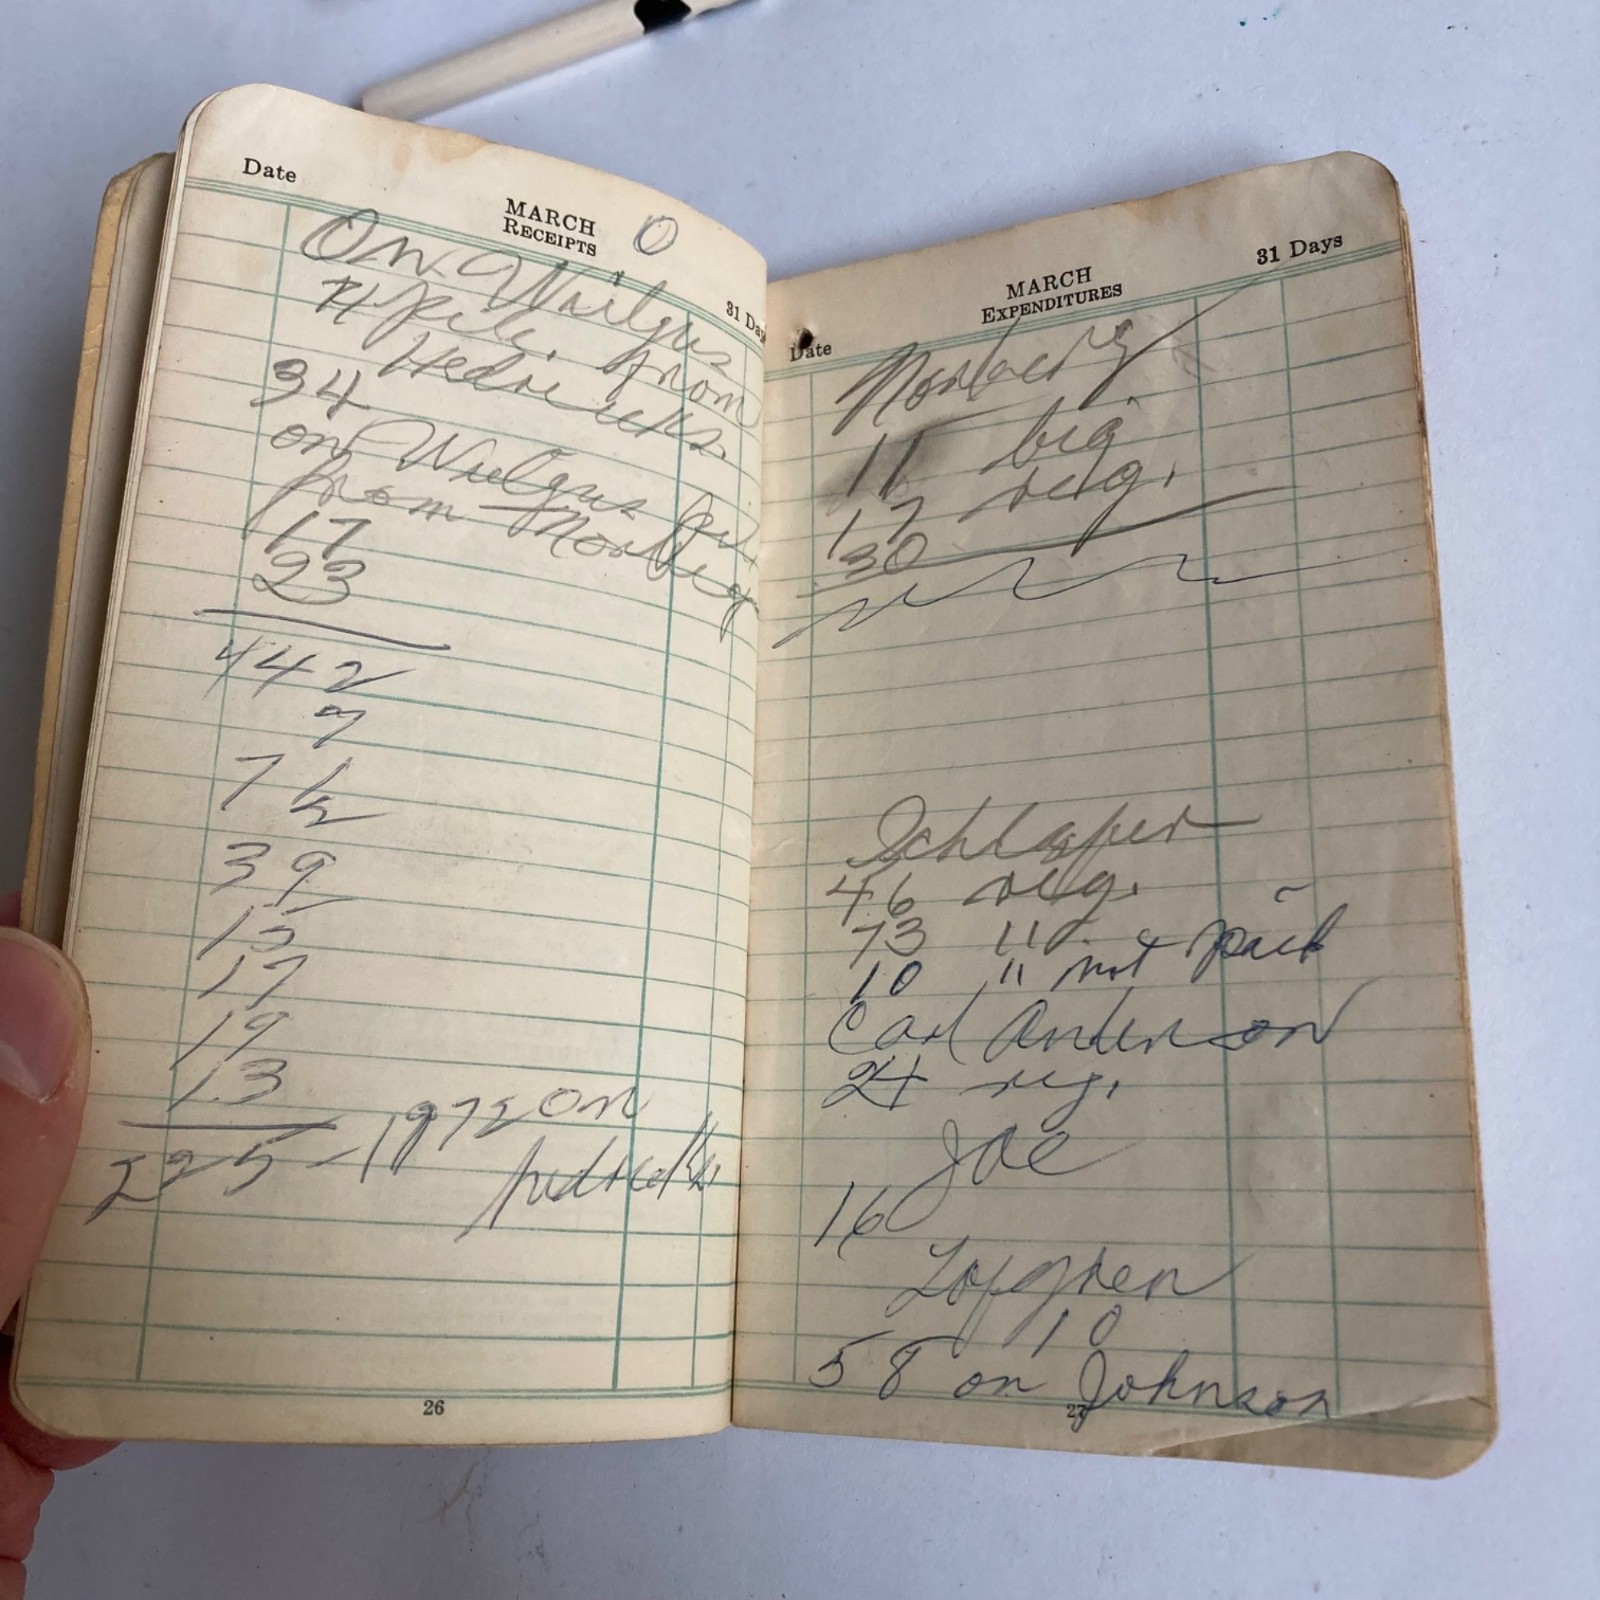 Date
MARCH
RECEIPTS 0
31 Da
On Wilgus
pile from
Hedricks.
34
on Wilgus
from Norberg
17
23
442
7
7 1/2
39
15
17
19
13
225 - 197 1/2 on
hedricks
MARCH
EXPENDITURES
31 Days
Date
Norberg
11 big
17 reg.
30
Schlafer
46 reg.
73 "
10 " not paid
Carl Anderson
24 reg.
Joe
16
Lofgren
10
58 on Johnson
26
27